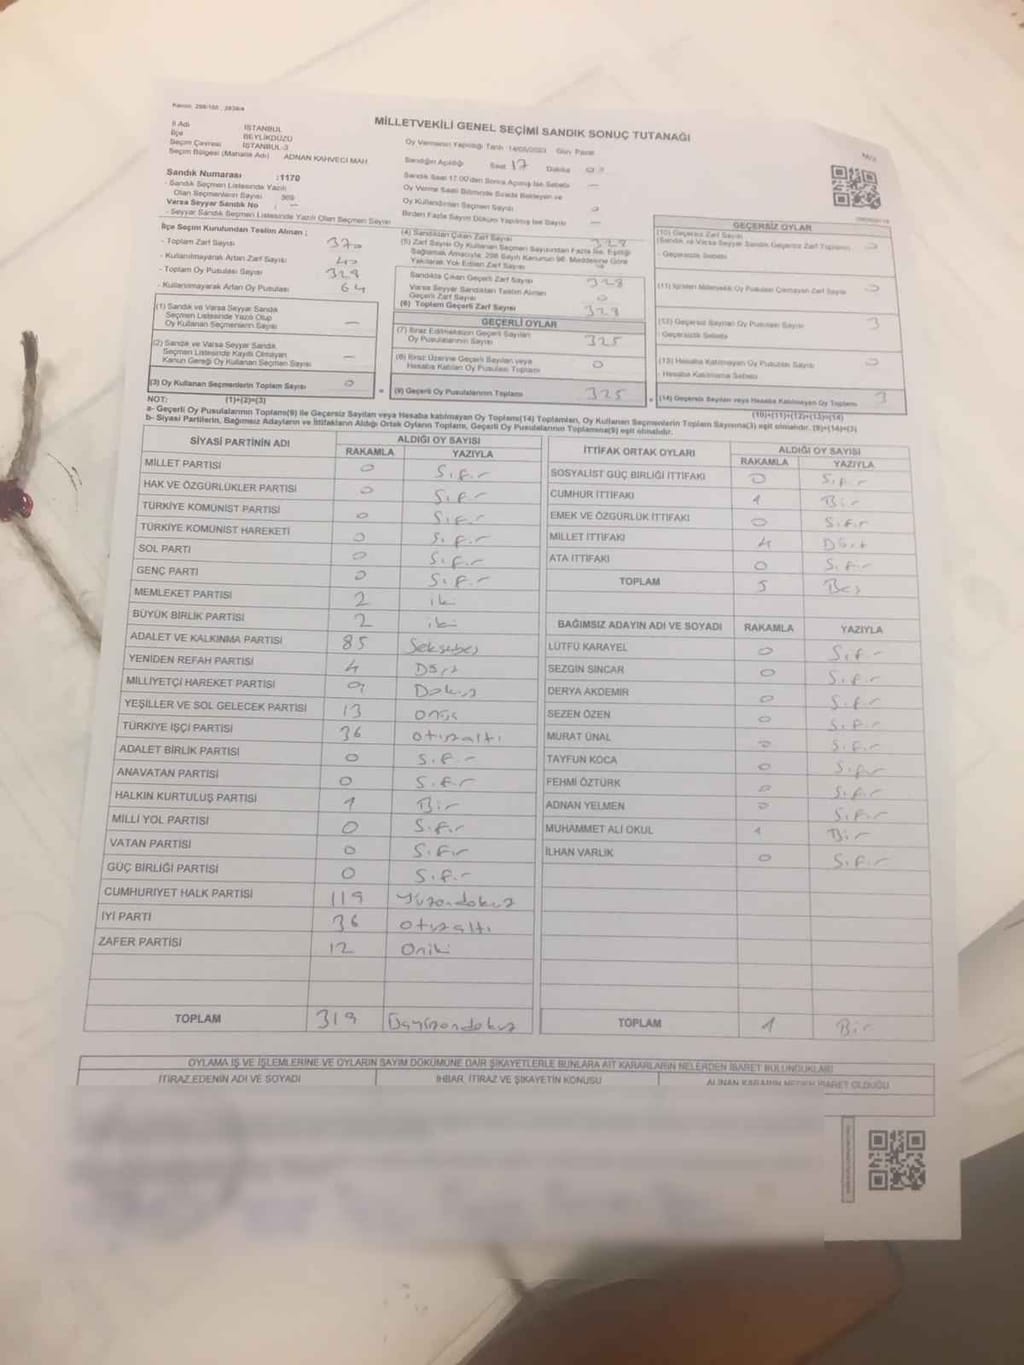 Kanun: 298/105 ; 2839/4
MİLLETVEKİLİ GENEL SEÇİMİ SANDIK SONUÇ TUTANAĞI
İl Adı İSTANBUL
İlçe BEYLİKDÜZÜ
Seçim Çevresi İSTANBUL-3
Seçim Bölgesi (Mahalle Adı) ADNAN KAHVECİ MAH
Sandık Numarası :1170
- Sandık Seçmen Listesinde Yazılı
Olan Seçmenlerin Sayısı 369
Varsa Seyyar Sandık No : —
- Seyyar Sandık Seçmen Listesinde Yazılı Olan Seçmen Sayısı
Oy Vermenin Yapıldığı Tarih 14/05/2023 Gün Pazar
Sandığın Açıldığı Saat 17 Dakika
Sandık Saat 17.00'den Sonra Açılmış İse Sebebi —
Oy Verme Saati Bitiminde Sırada Bekleyen ve
Oy Kullandırılan Seçmen Sayısı 0
Birden Fazla Sayım Döküm Yapılmış İse Sayısı —
İlçe Seçim Kurulundan Teslim Alınan ;
- Toplam Zarf Sayısı 370
- Kullanılmayarak Artan Zarf Sayısı
- Toplam Oy Pusulası Sayısı
- Kullanılmayarak Artan Oy Pusulası 64
(1) Sandık ve Varsa Seyyar Sandık
Seçmen Listesinde Yazılı Olup
Oy Kullanan Seçmenlerin Sayısı —
(2) Sandık ve Varsa Seyyar Sandık
Seçmen Listesinde Kayıtlı Olmayan
Kanun Gereği Oy Kullanan Seçmen Sayısı —
(3) Oy Kullanan Seçmenlerin Toplam Sayısı 0
(4) Sandıktan Çıkan Zarf Sayısı 328
(5) Zarf Sayısı Oy Kullanan Seçmen Sayısından Fazla İse, Eşitliği
Sağlamak Amacıyla, 298 Sayılı Kanunun 98. Maddesine Göre
Yakılarak Yok Edilen Zarf Sayısı
Sandıkta Çıkan Geçerli Zarf Sayısı 328
Varsa Seyyar Sandıktan Teslim Alınan
Geçerli Zarf Sayısı 0
(6) Toplam Geçerli Zarf Sayısı 328
GEÇERLİ OYLAR
(7) İtiraz Edilmeksizin Geçerli Sayılan
Oy Pusulalarının Sayısı 325
(8) İtiraz Üzerine Geçerli Sayılan veya
Hesaba Katılan Oy Pusulası Toplamı 0
(9) Geçerli Oy Pusulalarının Toplamı 325
GEÇERSİZ OYLAR
(10) Geçersiz Zarf Sayısı
(Sandık ve Varsa Seyyar Sandık Geçersiz Zarf Toplamı) 0
- Geçersizlik Sebebi
(11) İçinden Milletvekili Oy Pusulası Çıkmayan Zarf Sayısı 0
(12) Geçersiz Sayılan Oy Pusulası Sayısı 3
- Geçersizlik Sebebi
(13) Hesaba Katılmayan Oy Pusulası Sayısı 0
- Hesaba Katılmama Sebebi
(14) Geçersiz Sayılan veya Hesaba Katılmayan Oy Toplamı 3
NOT: (1)+(2)=(3) (10)+(11)+(12)+(13)=(14)
a- Geçerli Oy Pusulalarının Toplamı(9) ile Geçersiz Sayılan veya Hesaba katılmayan Oy Toplamı(14) Toplamları, Oy Kullanan Seçmenlerin Toplam Sayısına(3) eşit olmalıdır. (9)+(14)=(3)
b- Siyasi Partilerin, Bağımsız Adayların ve İttifakların Aldığı Ortak Oyların Toplamı, Geçerli Oy Pusulalarının Toplamına(9) eşit olmalıdır.
SİYASİ PARTİNİN ADI ALDIĞI OY SAYISI
RAKAMLA YAZIYLA
MİLLET PARTİSİ 0 Sıfır
HAK VE ÖZGÜRLÜKLER PARTİSİ 0 Sıfır
TÜRKİYE KOMÜNİST PARTİSİ 0 Sıfır
TÜRKİYE KOMÜNİST HAREKETİ 0 Sıfır
SOL PARTİ 0 Sıfır
GENÇ PARTİ 0 Sıfır
MEMLEKET PARTİSİ 2 iki
BÜYÜK BİRLİK PARTİSİ 2 iki
ADALET VE KALKINMA PARTİSİ 85 Seksenbeş
YENİDEN REFAH PARTİSİ 4 Dört
MİLLİYETÇİ HAREKET PARTİSİ 9 Dokuz
YEŞİLLER VE SOL GELECEK PARTİSİ 13 Onüç
TÜRKİYE İŞÇİ PARTİSİ 36 otuzaltı
ADALET BİRLİK PARTİSİ 0 Sıfır
ANAVATAN PARTİSİ 0 Sıfır
HALKIN KURTULUŞ PARTİSİ 1 Bir
MİLLİ YOL PARTİSİ 0 Sıfır
VATAN PARTİSİ 0 Sıfır
GÜÇ BİRLİĞİ PARTİSİ 0 Sıfır
CUMHURİYET HALK PARTİSİ 119 Yüzondokuz
İYİ PARTİ 36 otuzaltı
ZAFER PARTİSİ 12 Oniki
TOPLAM 319 Üçyüzondokuz
İTTİFAK ORTAK OYLARI ALDIĞI OY SAYISI
RAKAMLA YAZIYLA
SOSYALİST GÜÇ BİRLİĞİ İTTİFAKI 0 Sıfır
CUMHUR İTTİFAKI 1 Bir
EMEK VE ÖZGÜRLÜK İTTİFAKI 0 Sıfır
MİLLET İTTİFAKI 4 Dört
ATA İTTİFAKI 0 Sıfır
TOPLAM 5 Beş
BAĞIMSIZ ADAYIN ADI VE SOYADI RAKAMLA YAZIYLA
LÜTFÜ KARAYEL 0 Sıfır
SEZGİN SINCAR 0 Sıfır
DERYA AKDEMİR 0 Sıfır
SEZEN ÖZEN 0 Sıfır
MURAT ÜNAL 0 Sıfır
TAYFUN KOCA 0 Sıfır
FEHMİ ÖZTÜRK 0 Sıfır
ADNAN YELMEN 0 Sıfır
MUHAMMET ALİ OKUL 1 Bir
İLHAN VARLIK 0 Sıfır
TOPLAM 1 Bir
OYLAMA İŞ VE İŞLEMLERİNE VE OYLARIN SAYIM DÖKÜMÜNE DAİR ŞİKAYETLERLE BUNLARA AİT KARARLARIN NELERDEN İBARET BULUNDUKLARI
İTİRAZ EDENİN ADI VE SOYADI İHBAR, İTİRAZ VE ŞİKAYETİN KONUSU ALINAN KARARIN NEDEN İBARET OLDUĞU